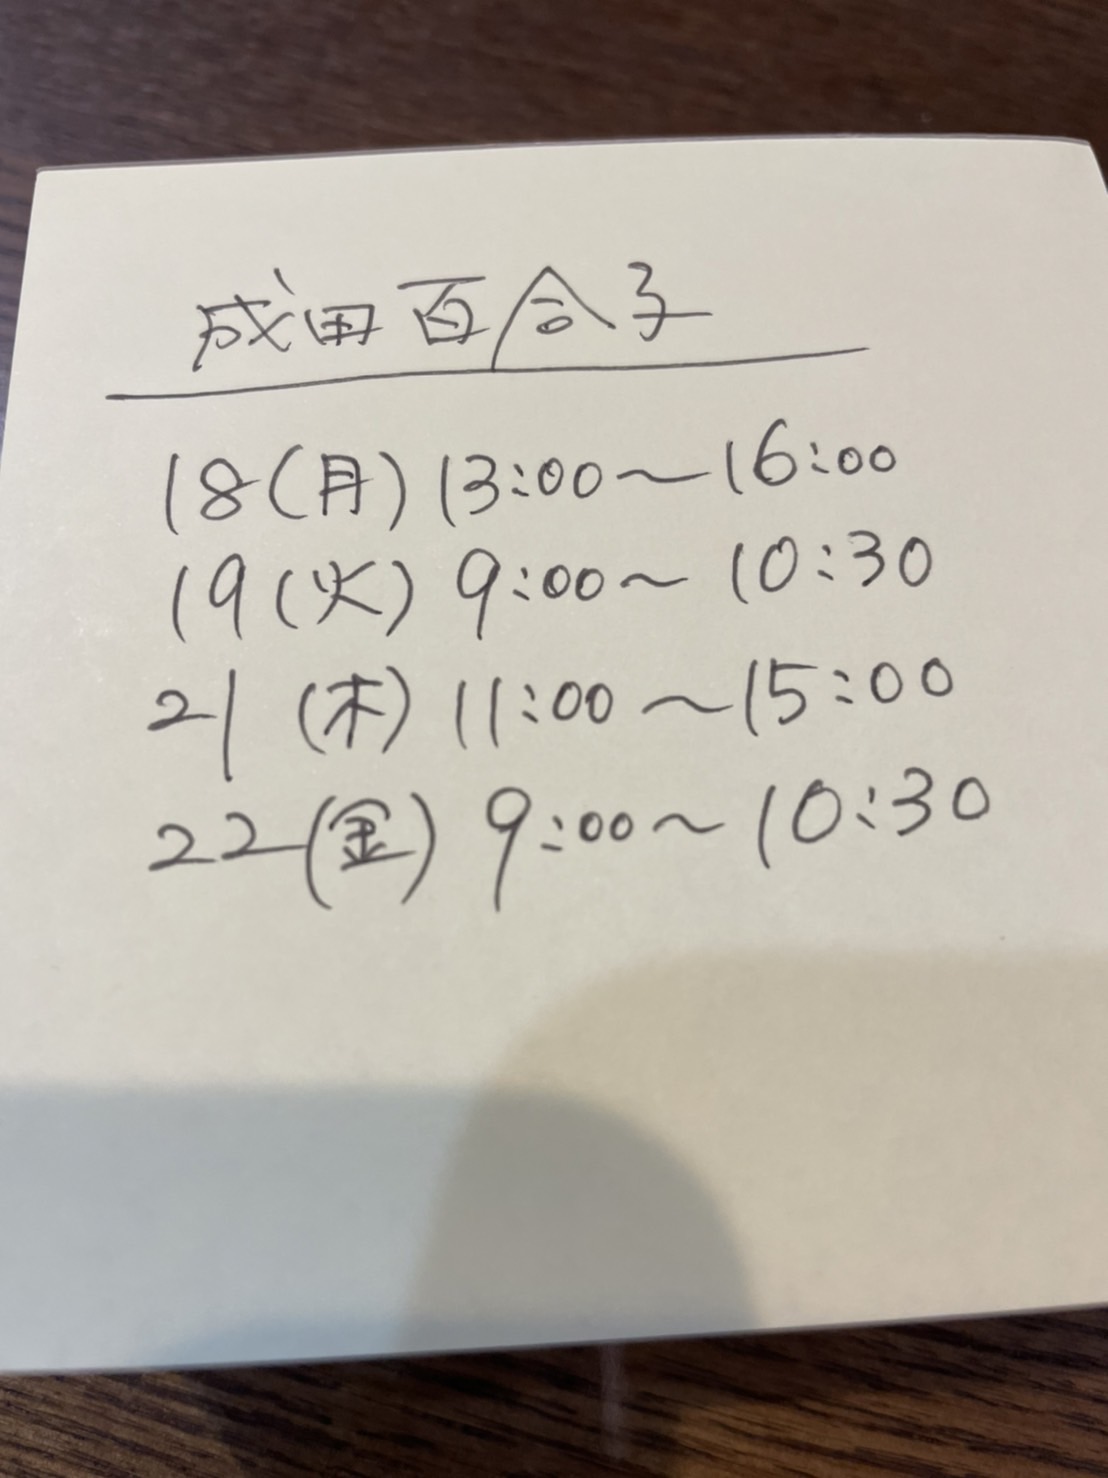 成田百合子
18(月) 13:00〜16:00
19(火) 9:00〜10:30
21(木) 11:00〜15:00
22(金) 9:00〜10:30